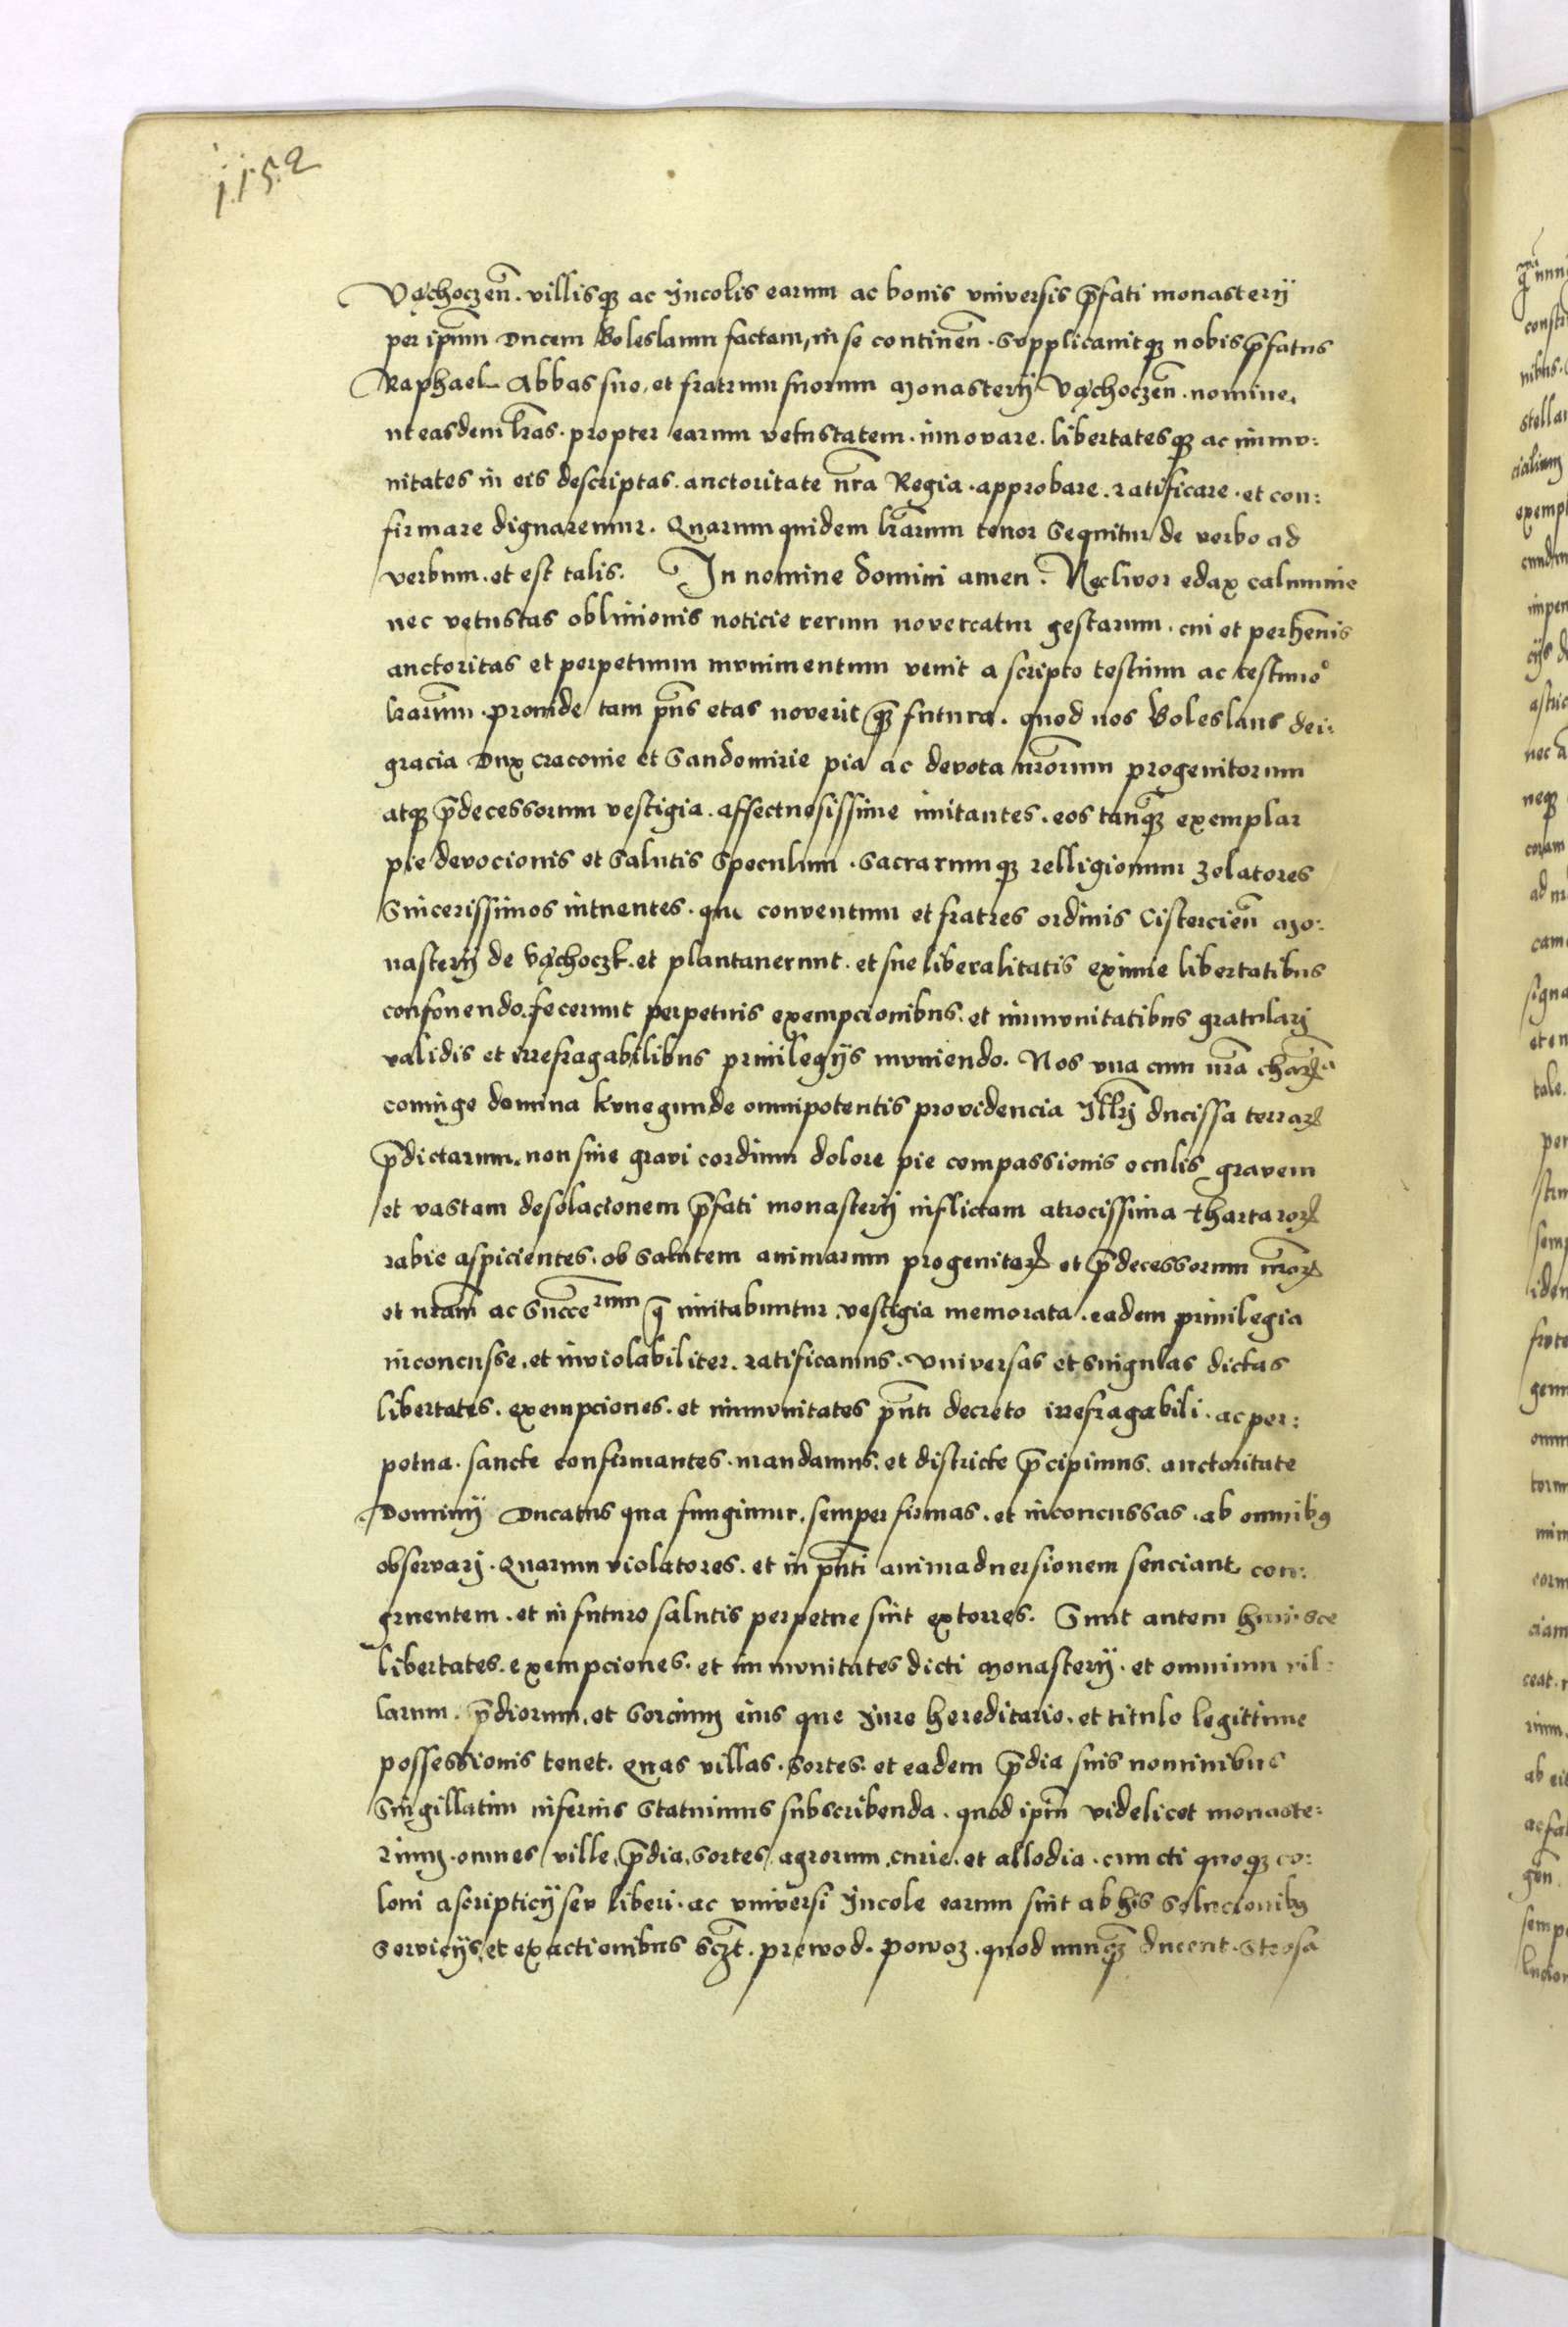 1152
Vąchoczen̄. villisqꝫ ac Jncolis earum ac bonis vniversis p̄fati monasterij
per ip̄um Ducem Boleslaum factam, in se continen̄. Supplicavitqꝫ nobis p̄fatus
Raphael Abbas suo, et fratrum suorum Monasterij Vąchoczen̄. nomine,
ut easdem l̄ras. propter earum vetustatem. innovare. libertatesqꝫ ac immu:
nitates in eis descriptas. auctoritate nr̄a Regia. approbare. ratificare. et con:
firmare dignaremur. Quarum quidem l̄rarum tenor sequitur de verbo ad
verbum. et est talis. In nomine domini amen. Nec livor edax calumnie
nec vetustas oblivionis noticie rerum novercatur gestarum. cui et perhen̄is
auctoritas et perpetuum munimentum venit a scripto testium ac testimoᵒ
l̄rarum. proinde tam p̄ns etas noverit qꝫ futura. quod nos Boleslaus dei:
gracia Dux cracovie et Sandomirie pia ac devota nr̄orum progenitorum
atqꝫ p̄decessorum vestigia. affectuosissime imitantes. eos tanqꝫ exemplar
pie devocionis et salutis speculum. sacrarumqꝫ relligionum zelatores
sincerissimos intuentes. qui conventum et fratres ordinis Cistercien̄ Mo:
nasterij de Vąchoczk. et plantaverunt. et sue liberalitatis eximie libertatibus
confovendo. fecerunt perpetuis exempcionibus. et immunitatibus gratularj
validis et irrefragabilibus privilegijs muniendo. Nos vna cum nr̄a char̄ꝭᵃ
coniuge domina kunegunde omnipotentis providencia Jll̄rj ducissa terrarꝝ
p̄dictarum. non sine gravi cordium dolore pie compassionis oculis gravem
et vastam desolacionem p̄fati monasterij inflictam atrocissima thartarorꝝ
rabie aspicientes. ob salutem animarum progenitorꝝ et p̄decessorum nr̄orꝝ
et nr̄am ac succeʳᵘᵐ q̄ imitabuntur vestigia memorata. eadem privilegia
inconcusse. et inviolabiliter. ratificamus. vniversas et singulas dictas
libertates. exempciones. et immunitates p̄nti decreto irrefragabili. ac per:
petua. sancte confirmantes. mandamus. et districte p̄cipimus. auctoritate
Dominij Ducatus qua fungimur. semper firmas. et inconcussas. ab omnibꝰ
observarj. Quarum violatores. et in p̄nti animadversionem senciant con:
gruentem. et in futuro salutis perpetue sint extorres. Sunt autem huiusce
libertates. exempciones. et immunitates dicti Monasterij. et omnium vil:
larum. p̄diorum. et sorcium eius que Jure hereditario. et titulo legittime
possessionis tenet. Quas villas. sortes. et eadem p̄dia suis nominibus
singillatim inferius statuimus subscribenda. quod ip̄m videlicet monaste:
rium. omnes ville, p̄dia, sortes agrorum, curie. et allodia. cuncti quoqꝫ co:
loni ascripticij seu liberi. ac vniversi Jncole earum sint ab his solucionibꝰ
servicijs, et exactionibus scꝫt. prewod. powoz. quod nunqꝫ ducent. strosa